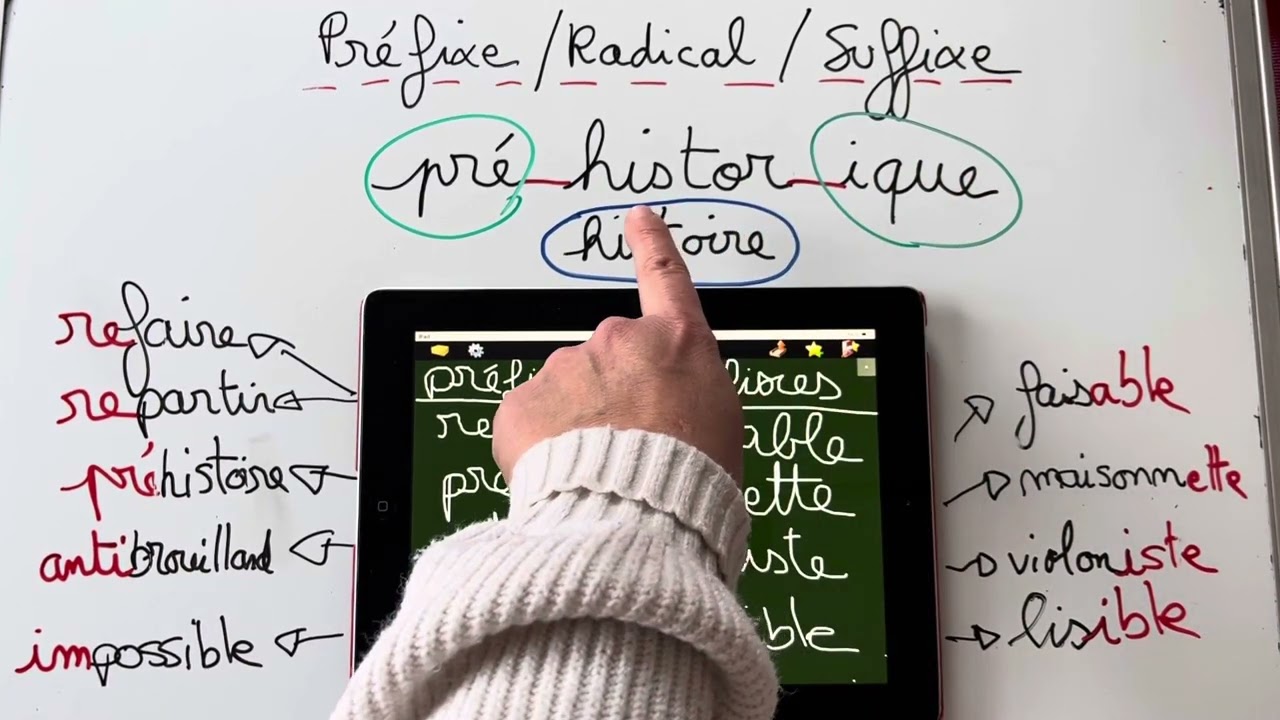 Préfixe / Radical / Suffixe
pré_histor_ique
refaire
repartir
préhistoire
antibrouillard
impossible
able
ette
iste
faisable
maisonnette
violoniste
lisible